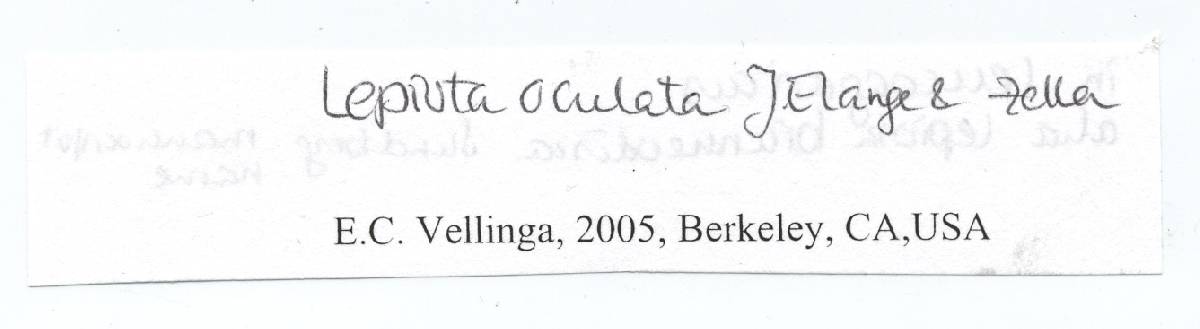 Lepiota oculata J.E Lange &
E.C. Vellinga, 2005, Berkeley, CA,USA